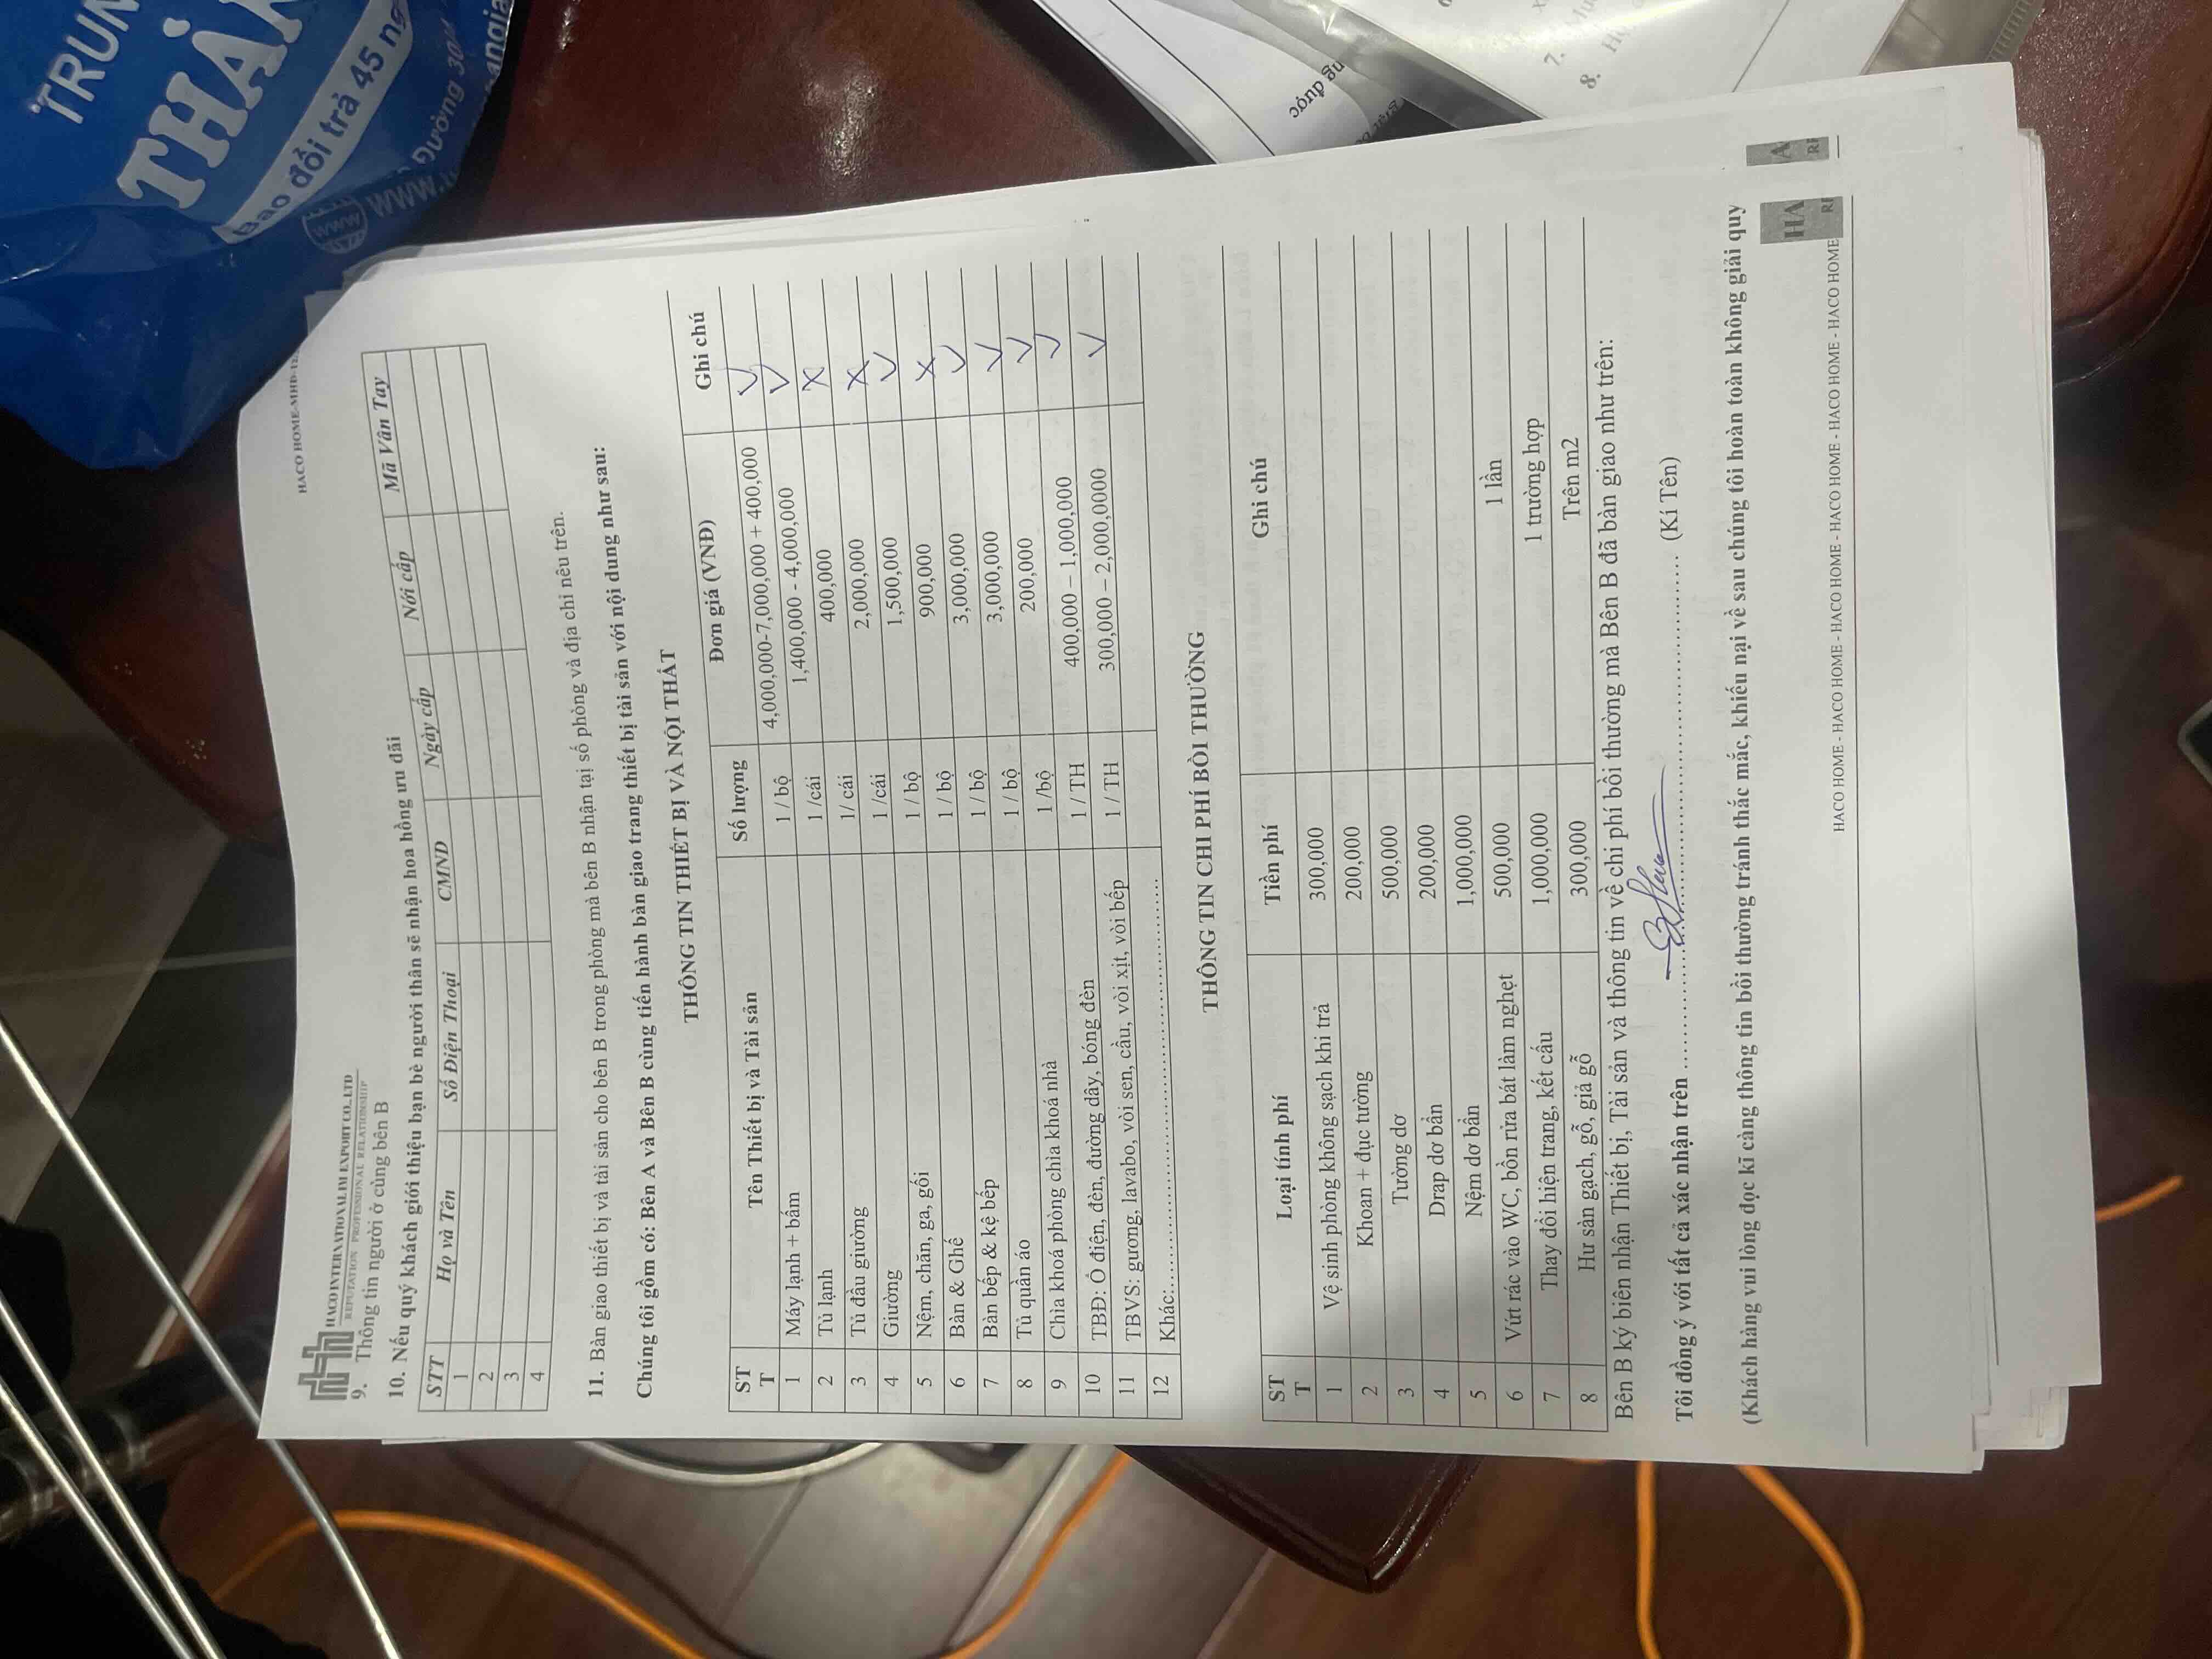 HACO INTERNATIONAL IM EXPORT CO., LTD
REPUTATION PROFESSIONAL RELATIONSHIP
HACO HOME-MHD-
9. Thông tin người ở cùng bên B
10. Nếu quý khách giới thiệu bạn bè người thân sẽ nhận hoa hồng ưu đãi
STT Họ và Tên Số Điện Thoại CMND Ngày cấp Nơi cấp Mã Vân Tay
1
2
3
4
11. Bàn giao thiết bị và tài sản cho bên B trong phòng mà bên B nhận tại số phòng và địa chỉ nêu trên.
Chúng tôi gồm có: Bên A và Bên B cùng tiến hành bàn giao trang thiết bị tài sản với nội dung như sau:
THÔNG TIN THIẾT BỊ VÀ NỘI THẤT
STT Tên Thiết bị và Tài sản Số lượng Đơn giá (VNĐ) Ghi chú
1 Máy lạnh + bấm 1 / bộ 4,000,000-7,000,000 + 400,000 V
2 Tủ lạnh 1 /cái 1,400,000 - 4,000,000 V
3 Tủ đầu giường 1/ cái 400,000 X
4 Giường 1 /cái 2,000,000 X
5 Nệm, chăn, ga, gối 1 / bộ 1,500,000 V
6 Bàn & Ghế 1 / bộ 900,000 X
7 Bàn bếp & kệ bếp 1 / bộ 3,000,000 V
8 Tủ quần áo 1 / bộ 3,000,000 V
9 Chìa khoá phòng chìa khoá nhà 1 /bộ 200,000 V
10 TBĐ: Ổ điện, đèn, đường dây, bóng đèn 1 / TH 400,000 – 1,000,000 V
11 TBVS: gương, lavabo, vòi sen, cầu, vòi xịt, vòi bếp 1 / TH 300,000 – 2,000,0000 V
12 Khác:
THÔNG TIN CHI PHÍ BỒI THƯỜNG
STT Loại tính phí Tiền phí Ghi chú
1 Vệ sinh phòng không sạch khi trả 300,000
2 Khoan + đục tường 200,000
3 Tường dơ 500,000
4 Drap dơ bẩn 200,000
5 Nệm dơ bẩn 1,000,000
6 Vứt rác vào WC, bồn rửa bát làm nghẹt 500,000 1 lần
7 Thay đổi hiện trang, kết cấu 1,000,000 1 trường hợp
8 Hư sàn gạch, gỗ, giả gỗ 300,000 Trên m2
Bên B ký biên nhận Thiết bị, Tài sản và thông tin về chi phí bồi thường mà Bên B đã bàn giao như trên:
Tôi đồng ý với tất cả xác nhận trên (Kí Tên)
(Khách hàng vui lòng đọc kĩ càng thông tin bồi thường tránh thắc mắc, khiếu nại về sau chúng tôi hoàn toàn không giải quy
HACO HOME - HACO HOME - HACO HOME - HACO HOME - HACO HOME - HACO HOME - HACO HOME
HA
RE
A
RE
TRUN
THẢ
Bao đổi trả 45 ng
Đường 30
www
7.
8.
ng được